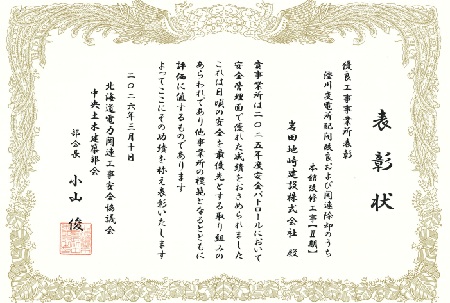 表彰状
優良工事事業所表彰
澄川変電所配開改良および関連除却のうち
本館改修工事【Ⅱ期】
岩田地崎建設株式会社 殿
貴事業所は二〇二五年度安全パトロールにおいて
安全管理面で優れた成績をおさめられました
これは日頃の安全を最優先とする取り組みの
あらわれであり他事業所の模範となるとともに
評価に値するものであります
よってここにその功績を称え表彰いたします
二〇二六年三月十日
北海道電力関連工事安全協議会
中央土木建築部会
部会長 小山 俊